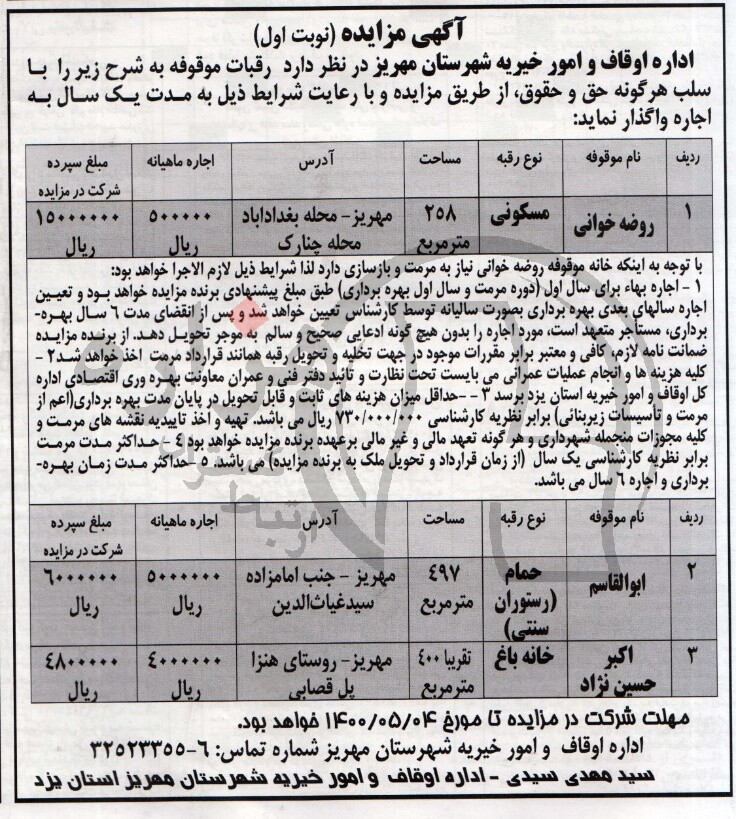 آگهی مزایده (نوبت اول)
اداره اوقاف و امور خیریه شهرستان مهریز در نظر دارد رقبات موقوفه به شرح زیر را با
سلب هرگونه حق و حقوق، از طریق مزایده و با رعایت شرایط ذیل به مدت یک سال به
اجاره واگذار نماید:
ردیف نام موقوفه نوع رقبه مساحت آدرس اجاره ماهیانه مبلغ سپرده
شرکت در مزایده
۱ روضه خوانی مسکونی ۲۵۸ مهریز- محله بغداداباد ۵۰۰۰۰۰ ۱۵۰۰۰۰۰۰
مترمربع محله چنارک ریال ریال
با توجه به اینکه خانه موقوفه روضه خوانی نیاز به مرمت و بازسازی دارد لذا شرایط ذیل لازم الاجرا خواهد بود:
۱ - اجاره بهاء برای سال اول (دوره مرمت و سال اول بهره برداری) طبق مبلغ پیشنهادی برنده مزایده خواهد بود و تعیین
اجاره سالهای بعدی بهره برداری بصورت سالیانه توسط کارشناس تعیین خواهد شد و پس از انقضای مدت ۶ سال بهره-
برداری، مستأجر متعهد است، مورد اجاره را بدون هیچ گونه ادعایی صحیح و سالم به موجر تحویل دهد. از برنده مزایده
ضمانت نامه لازم، کافی و معتبر برابر مقررات موجود در جهت تخلیه و تحویل رقبه همانند قرارداد مرمت اخذ خواهد شد۲ -
کلیه هزینه ها و انجام عملیات عمرانی می بایست تحت نظارت و تائید دفتر فنی و عمران معاونت بهره وری اقتصادی اداره
کل اوقاف و امور خیریه استان یزد برسد ۳ - -حداقل میزان هزینه های ثابت و قابل تحویل در پایان مدت بهره برداری(اعم از
مرمت و تأسیسات زیربنائی) برابر نظریه کارشناسی ۷۳۰/۰۰۰/۰۰۰ ریال می باشد. تهیه و اخذ تاییدیه نقشه های مرمت و
کلیه مجوزات منجمله شهرداری و هر گونه تعهد مالی و غیر مالی برعهده برنده مزایده خواهد بود ۴ - حداکثر مدت مرمت
برابر نظریه کارشناسی یک سال (از زمان قرارداد و تحویل ملک به برنده مزایده) می باشد. ۵ -حداکثر مدت زمان بهره-
برداری و اجاره ۶ سال می باشد.
ردیف نام موقوفه نوع رقبه مساحت آدرس اجاره ماهیانه مبلغ سپرده
شرکت در مزایده
۲ ابوالقاسم حمام ۴۹۷ مهریز - جنب امامزاده ۵۰۰۰۰۰۰ ۶۰۰۰۰۰۰
(رستوران مترمربع سیدغیاث‌الدین ریال ریال
سنتی)
۳ اکبر خانه باغ تقریبا ۴۰۰ مهریز- روستای هنزا ۴۰۰۰۰۰۰ ۴۸۰۰۰۰۰
حسین نژاد مترمربع پل قصابی ریال ریال
مهلت شرکت در مزایده تا مورخ ۱۴۰۰/۰۵/۰۴ خواهد بود.
اداره اوقاف و امور خیریه شهرستان مهریز شماره تماس: ۶-۳۲۵۲۳۳۵۵
سید مهدی سیدی - اداره اوقاف و امور خیریه شهرستان مهریز استان یزد